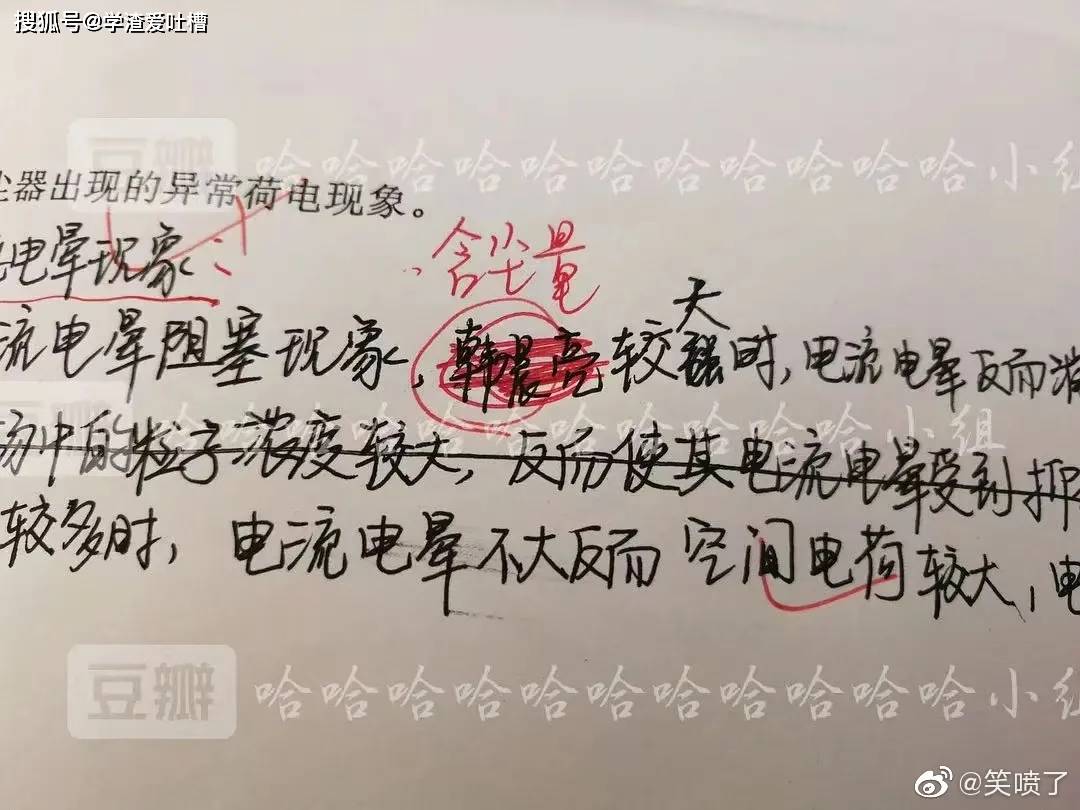 搜狐号@学渣爱吐槽
豆瓣 哈哈哈哈哈哈哈哈哈哈哈小组
尘器出现的异常荷电现象。
电晕现象
含尘量
大
流电晕阻塞现象,韩晨亮较强时,电流电晕反而
豆瓣 哈哈哈哈哈哈哈哈哈哈哈小组
场中的粒子浓度较大,反而使其电流电晕受到抑
较多时,电流电晕不大反而空间电荷较大,电
豆瓣 哈哈哈哈哈哈哈哈哈哈哈小组
@笑喷了